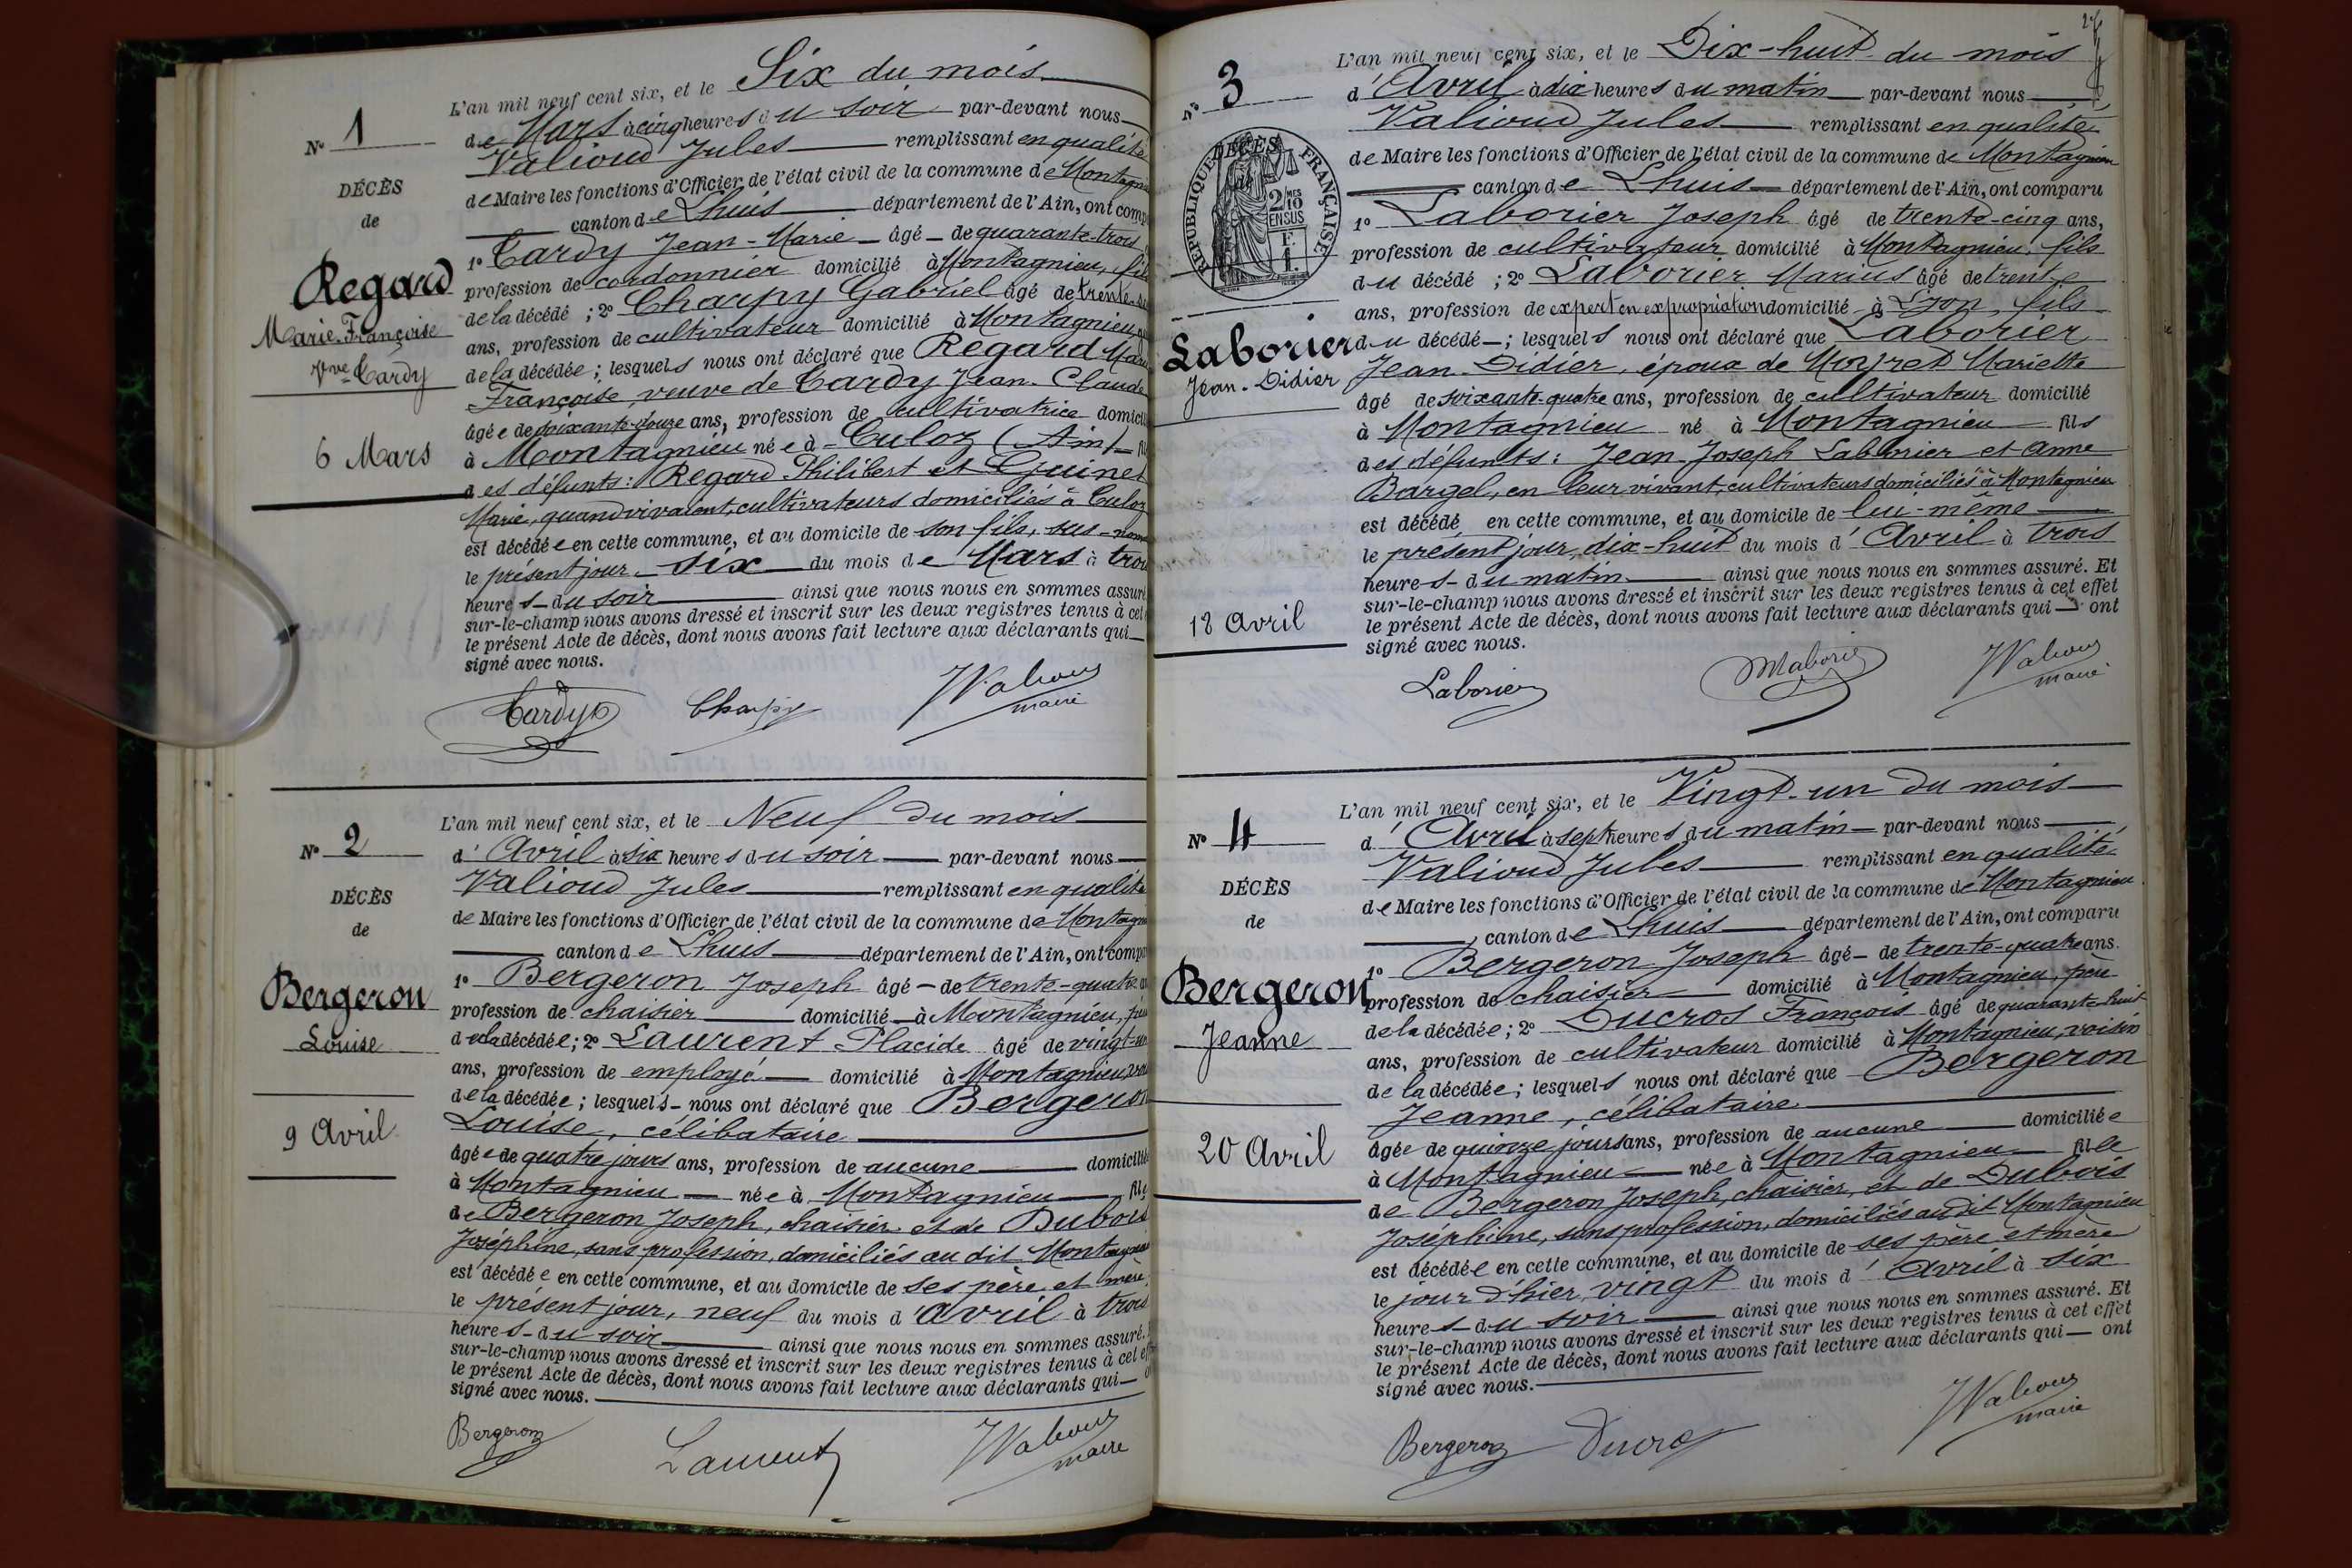 N° 1
DÉCÈS
de
Regard
Marie-Françoise
Vve Cardy
6 Mars
L'an mil neuf cent six, et le Six du mois
de Mars à cinq heures du soir par-devant nous
Valioud Jules remplissant en qualité
de Maire les fonctions d'Officier de l'état civil de la commune de Montagn
canton de Lhuis département de l'Ain, ont comp
1° Cardy Jean-Marie âgé de quarante-trois
profession de cordonnier domicilié à Montagnieu, fils
de la décédé ; 2° Charpy Gabriel âgé de trente-
ans, profession de cultivateur domicilié à Montagnieu
de la décédée ; lesquels nous ont déclaré que Regard Marie
Françoise, veuve de Cardy Jean-Claude
âgée de soixante-douze ans, profession de cultivatrice domicil
à Montagnieu née à Culoz (Ain) fil
des défunts : Regard Philibert et Guinet
Marie, quand vivaient, cultivateurs domiciliés à Culoz
est décédée en cette commune, et au domicile de son fils, sus-nom
le présent jour six du mois de Mars à trois
heures du soir ainsi que nous nous en sommes assuré
sur-le-champ nous avons dressé et inscrit sur les deux registres tenus à cet
le présent Acte de décès, dont nous avons fait lecture aux déclarants qui
signé avec nous.
Cardy Charpy JValioud
maire
N° 2
DÉCÈS
de
Bergeron
Louise
9 Avril
L'an mil neuf cent six, et le Neuf du mois
d'Avril à six heures du soir par-devant nous
Valioud Jules remplissant en qualité
de Maire les fonctions d'Officier de l'état civil de la commune de Montagn
canton de Lhuis département de l'Ain, ont compa
1° Bergeron Joseph âgé de trente-quatre an
profession de chaisier domicilié à Montagnieu, père
de la décédée ; 2° Laurent Placide âgé de vingt-un
ans, profession de employé domicilié à Montagnieu, voi
de la décédée ; lesquels nous ont déclaré que Bergeron
Louise, célibataire
âgée de quatre jours ans, profession de aucune domicilié
à Montagnieu née à Montagnieu fille
de Bergeron Joseph, chaisier et de Dubois
Joséphine, sans profession, domiciliés au dit Montagnieu
est décédée en cette commune, et au domicile de ses père et mère
le présent jour, neuf du mois d'avril à trois
heures du soir ainsi que nous nous en sommes assuré.
sur-le-champ nous avons dressé et inscrit sur les deux registres tenus à cet ef
le présent Acte de décès, dont nous avons fait lecture aux déclarants qui
signé avec nous.
Bergeron Laurent JValioud
maire
N° 3
RÉPUBLIQUE FRANÇAISE
DÉCÈS
2/10 EN SUS
Laborier
Jean-Didier
18 Avril
L'an mil neuf cent six, et le Dix-huit du mois
d'Avril à dix heures du matin par-devant nous
Valioud Jules remplissant en qualité
de Maire les fonctions d'Officier de l'état civil de la commune de Montagnieu
canton de Lhuis département de l'Ain, ont comparu
1° Laborier Joseph âgé de trente-cinq ans,
profession de cultivateur domicilié à Montagnieu, fils
du décédé ; 2° Laborier Marius âgé de trente
ans, profession de expert en expropriation domicilié à Lyon, fils
du décédé ; lesquels nous ont déclaré que Laborier
Jean-Didier, époux de Moyret Mariette
âgé de soixante-quatre ans, profession de cultivateur domicilié
à Montagnieu né à Montagnieu fils
des défunts : Jean-Joseph Laborier et Anne
Bargel, en leur vivant, cultivateurs domiciliés à Montagnieu
est décédé en cette commune, et au domicile de lui-même
le présent jour, dix-huit du mois d'Avril à trois
heures du matin ainsi que nous nous en sommes assuré. Et
sur-le-champ nous avons dressé et inscrit sur les deux registres tenus à cet effet
le présent Acte de décès, dont nous avons fait lecture aux déclarants qui ont
signé avec nous.
Laborier MLaborier JValioud
maire
N° 4
DÉCÈS
de
Bergeron
Jeanne
20 Avril
L'an mil neuf cent six, et le Vingt-un du mois
d'Avril à sept heures du matin par-devant nous
Valioud Jules remplissant en qualité
de Maire les fonctions d'Officier de l'état civil de la commune de Montagnieu
canton de Lhuis département de l'Ain, ont comparu
1° Bergeron Joseph âgé de trente-quatre ans.
profession de chaisier domicilié à Montagnieu, père
de la décédée ; 2° Ducros François âgé de quarante-huit
ans, profession de cultivateur domicilié à Montagnieu, voisin
de la décédée ; lesquels nous ont déclaré que Bergeron
Jeanne, célibataire
âgée de quinze jours ans, profession de aucune domiciliée
à Montagnieu née à Montagnieu fille
de Bergeron Joseph, chaisier, et de Dubois
Joséphine, sans profession, domiciliés au dit Montagnieu
est décédée en cette commune, et au domicile de ses père et mère
le jour d'hier, vingt du mois d'Avril à six
heures du soir ainsi que nous nous en sommes assuré. Et
sur-le-champ nous avons dressé et inscrit sur les deux registres tenus à cet effet
le présent Acte de décès, dont nous avons fait lecture aux déclarants qui ont
signé avec nous.
Bergeron Ducros JValioud
maire